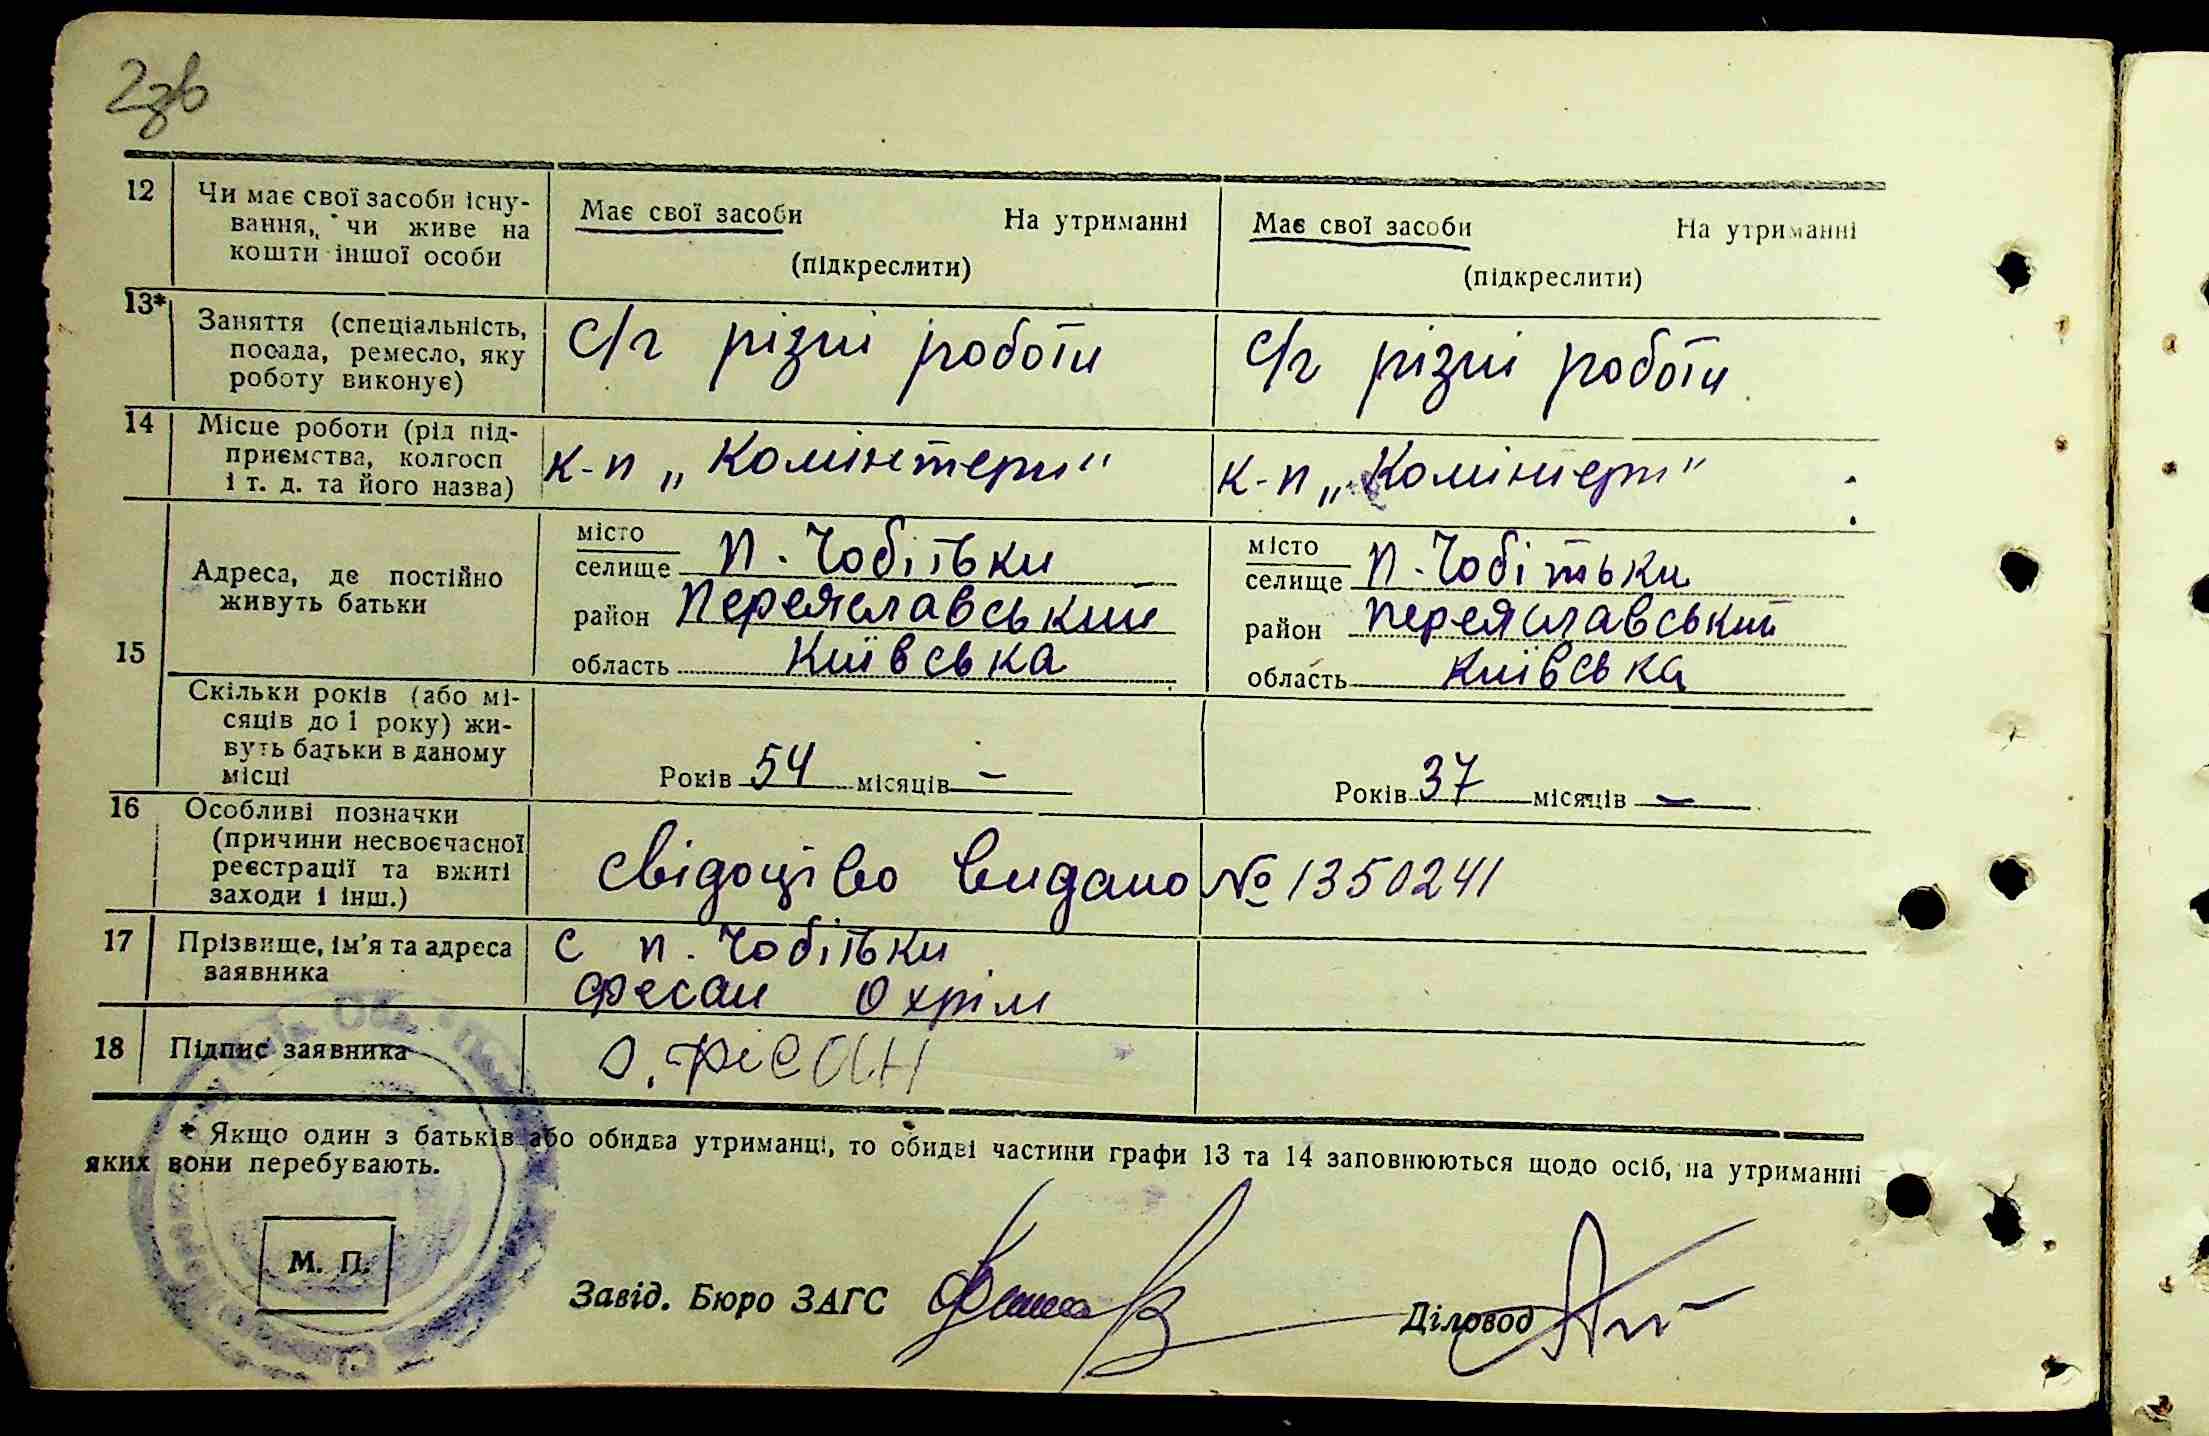 2зв
12 Чи має свої засоби існу-
вання, чи живе на
кошти іншої особи
Має свої засоби На утриманні
(підкреслити)
Має свої засоби На утриманні
(підкреслити)
13* Заняття (спеціальність,
посада, ремесло, яку
роботу виконує)
с/г різні роботи
с/г різні роботи
14 Місце роботи (рід під-
приємства, колгосп
і т. д. та його назва)
к-п „Комінтерн"
к-п „Комінтерн"
15
Адреса, де постійно
живуть батьки
місто
селище П. Чобітьки
район Переяславський
область Київська
місто
селище П. Чобітьки
район Переяславський
область Київська
Скільки років (або мі-
сяців до 1 року) жи-
вуть батьки в даному
місці
Років 54 місяців –
Років 37 місяців –
16 Особливі позначки
(причини несвоєчасної
реєстрації та вжиті
заходи і інш.)
Свідоцтво видано № 1350241
17 Прізвище, ім'я та адреса
заявника
с п. Чобітьки
Фесан Охрім
18 Підпис заявника
О. Фесан
* Якщо один з батьків або обидва утриманці, то обидві частини графи 13 та 14 заповнюються щодо осіб, на утриманні
яких вони перебувають.
М. П.
Завід. Бюро ЗАГС
Діловод